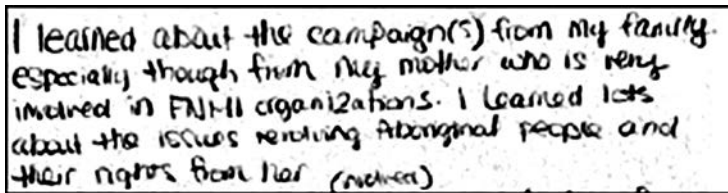 I learned about the campaign(s) from my family.
especially though from my mother who is very
involved in FNMI organizations. I learned lots
about the issues revolving Aboriginal people and
their rights from her